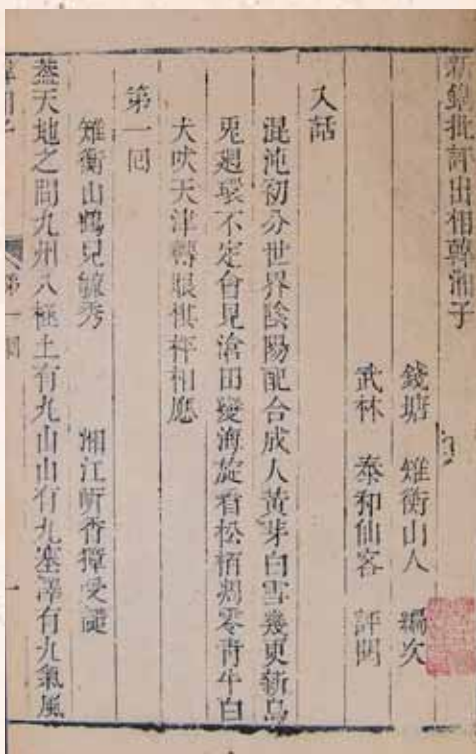 新鐫批評出相韓湘子
錢塘 雉衡山人 編次
武林 泰和仙客 評閱
入話
混沌初分世界陰陽配合成人黃芽白雪幾更新烏
兎迴環不定台見滄田變海旋看松栢凋零青牛白
犬吠天津轉眼棋枰相應
第一回
雉衡山鶴兒毓秀 湘江岍香獐受譴
蓋天地之間九州八極土有九山山有九塞澤有九氣風
第一回
一